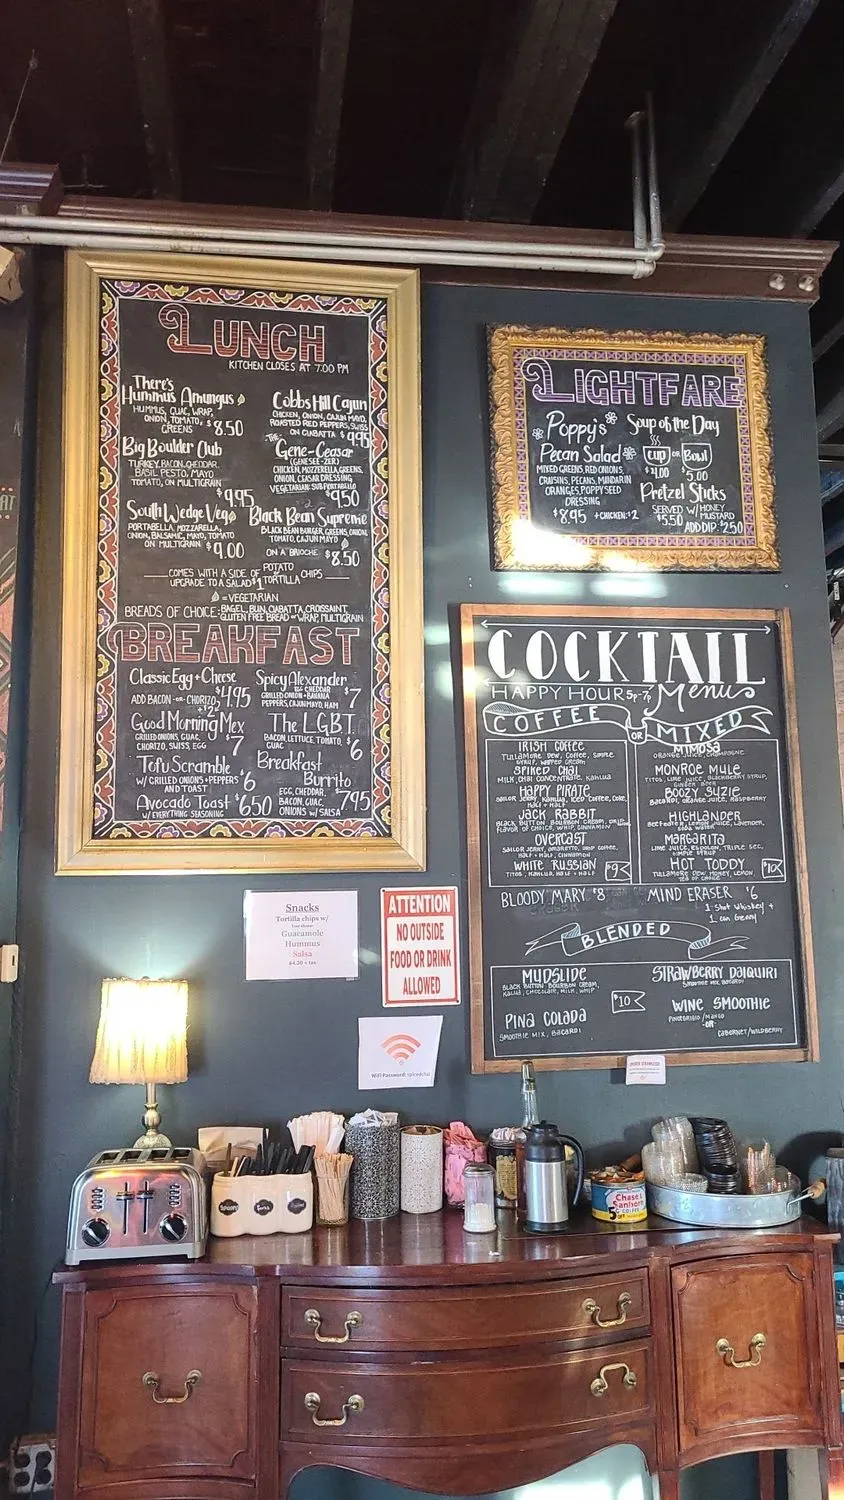 LUNCH
KITCHEN CLOSES AT 7:00 PM
There's
Hummus Amungus
HUMMUS, GUAC, WRAP,
ONION, TOMATO,
GREENS $8.50
Big Boulder Club
TURKEY, BACON, CHEDDAR,
BASIL PESTO, MAYO
TOMATO, ON MULTIGRAIN
$9.95
South Wedge Veg
PORTABELLA, MOZZARELLA,
ONION, BALSAMIC, MAYO, TOMATO
ON MULTIGRAIN $9.00
Cobbs Hill Cajun
CHICKEN, ONION, CAJUN MAYO,
ROASTED RED PEPPERS, SWISS
ON CIABATTA $9.95
THE
Gene-Ceasar
(GENESEE-ZER)
CHICKEN, MOZZERELLA, GREENS,
ONION, CEASAR DRESSING
VEGETARIAN: SUB PORTABELLO
$9.50
Black Bean Supreme
BLACK BEAN BURGER, GREENS, ONION,
TOMATO, CAJUN MAYO
ON A BRIOCHE $8.50
COMES WITH A SIDE OF POTATO
TORTILLA CHIPS
UPGRADE TO A SALAD $1
=VEGETARIAN
BREADS OF CHOICE: BAGEL, BUN, CIABATTA, CROISSAINT,
GLUTEN FREE BREAD OR WRAP, MULTIGRAIN
BREAKFAST
Classic Egg + Cheese
ADD BACON -OR- CHORIZO $4.95
+$2
Good Morning Mex
GRILLED ONIONS, GUAC,
CHORIZO, SWISS, EGG $7
Tofu Scramble
W/ GRILLED ONIONS + PEPPERS $6
AND TOAST
Avocado Toast $6.50
W/ EVERYTHING SEASONING
Spicy Alexander
EGG, CHEDDAR
GRILLED ONION + BANANA
PEPPERS, CAJUN MAYO, HAM $7
The L.G.B.T.
BACON, LETTUCE, TOMATO,
GUAC $6
Breakfast
Burrito
EGG, CHEDDAR,
BACON, GUAC,
ONIONS W/ SALSA $7.95
LIGHTFARE
Poppy's
Pecan Salad
MIXED GREENS, RED ONIONS,
CRAISINS, PECANS, MANDARIN
ORANGES, POPPYSEED
DRESSING
$8.95 +CHICKEN: $2
Soup of the Day
CUP OR BOWL
$4.00 $5.00
Pretzel Sticks
SERVED W/ HONEY
$5.50 MUSTARD
ADD DIP: $2.50
COCKTAIL
HAPPY HOUR 5p-7p Menu
COFFEE OR MIXED
IRISH COFFEE
TULLAMORE DEW, COFFEE, SIMPLE
SYRUP, WHIPPED CREAM
SPIKED CHAI
MILK, CHAI CONCENTRATE, KAHLUA
HAPPY PIRATE
SAILOR JERRY, KAHLUA, ICED COFFEE, COKE,
HALF + HALF
JACK RABBIT
BLACK BUTTON BOURBON CREAM, DRIP
FLAVOR OF CHOICE, WHIP, CINNAMON
OVERCAST
SAILOR JERRY, AMARETTO, DRIP COFFEE,
HALF + HALF, CINNAMON
WHITE RUSSIAN
TITOS, KAHLUA, HALF + HALF
$9
MIMOSA
ORANGE JUICE, CHAMPAGNE
MONROE MULE
TITOS, LIME JUICE, BLACKBERRY SYRUP,
GINGER BEER
BOOZY SUZIE
BACARDI, ORANGE JUICE, RASPBERRY
HIGHLANDER
BEEFEATER, LEMON JUICE, LAVENDER,
SODA WATER
MARGARITA
LIME JUICE, ESPOLON, TRIPLE SEC,
SIMPLE SYRUP
HOT TODDY
TULLAMORE DEW, HONEY, LEMON
TEA OF CHOICE
$10
BLOODY MARY $8 MIND ERASER $6
1 Shot Whiskey +
1 can Genny
BLENDED
MUDSLIDE
BLACK BUTTON BOURBON CREAM,
KALUA, CHOCOLATE, MILK, WHIP
PINA COLADA
SMOOTHIE MIX, BACARDI
$10
STRAWBERRY DAIQUIRI
SMOOTHIE MIX, BACARDI
WINE SMOOTHIE
PINOT GRIGIO/MANGO
-OR-
CABERNET/WILDBERRY
Snacks
Tortilla chips w/
Your choice:
Guacamole
Hummus
Salsa
$4.50 + tax
ATTENTION
NO OUTSIDE
FOOD OR DRINK
ALLOWED
WiFi Password: spicedchai
Chase &
Sanborn
COFFEE
5¢
OFF